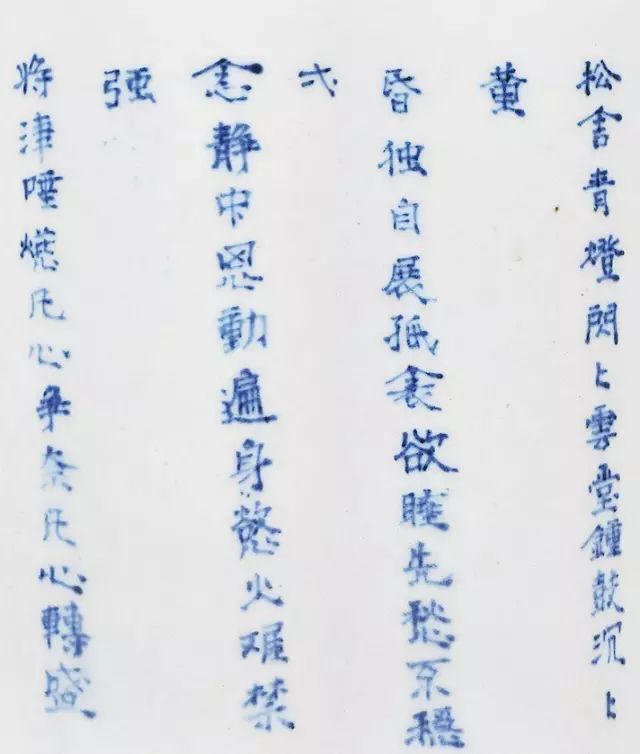 松舍青燈閃〻雲堂鍾鼓沉〻
黄
昏独自展孤衾欲睡先愁不穩
弌
念静中思動遍身慾火难禁
强
将津唾嚥凡心争奈凡心轉盛